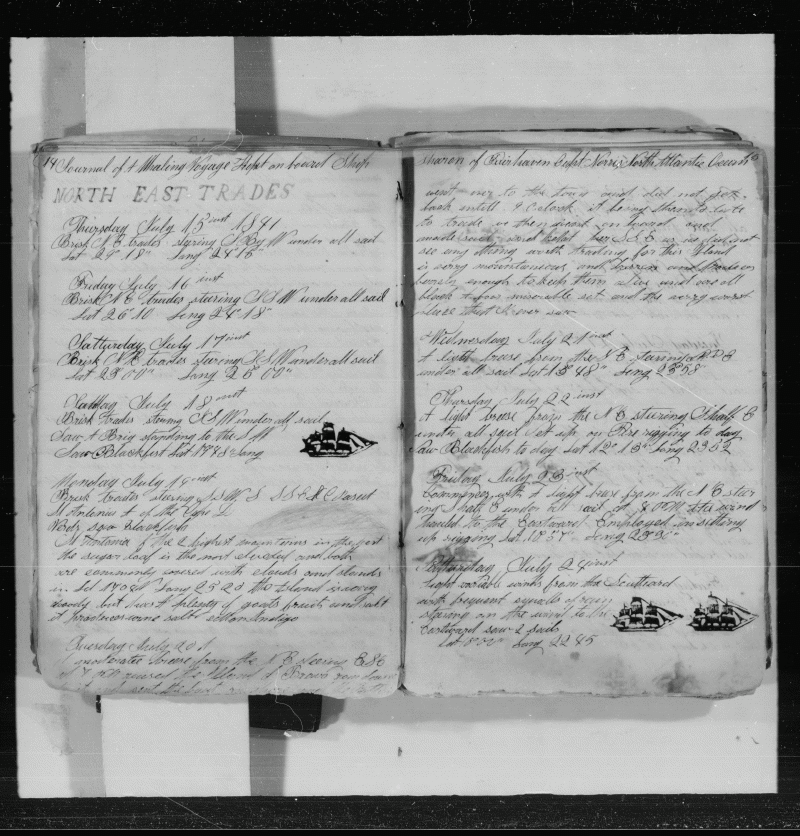 14 Journal of A Whaling Voyage Kept on board Ship
NORTH EAST TRADES
Thursday July 15 inst 1841
Brisk N E trades steering S By W under all sail
Lat 29° 18" Long 24° 15"
Friday July 16 inst
Brisk N E trades steering S S W under all sail
Lat 26° 10 Long 24° 18"
Satturday July 17 inst
Brisk N E trades steering S S W under all sail
Lat 23° 00" Long 25° 00"
Sunday July 18 inst
Brisk trades steering S S W under all sail
Saw A Brig standing to the S W
Saw Blackfish Lat 17 48 Long
Monday July 19 inst
Brisk trades steering S S W S S S E
St Antonia 1 of the Cape D
Verds saw Blackfish
St Antonia of the 2 highest mountains in the
the sugar loaf is the most elevated and both
are commonly covered with clouds and stands
in Lat 17 02 N Long 25 25 the Island is very
but has A plenty of goats fruit and salt
it produces wine salt cotton Indigo
Tuesday July 20
moderate breese from the N E steering E S E
at 7 P M passed the Island A Brava
sharon of Fairhaven Capt Norris North Atlantic Ocean 15
went over to the town and did not get
back untill 9 O clock it being then to late
to trade so then went on board and
made sail and kept her S S E as we did not
see any thing worth trading for this Island
is very mountainous and barren and produces
barely enough to keep them alive and are all
black & poor miserable set and the very worst
place that I ever saw
Wednesday July 21 inst
A light breese from the N E steering S B E
under all sail Lat 13 48" Long 23 58
Thursday July 22 inst
A light breese from the N E steering S half E
under all sail set up on Fore rigging to day
Saw Blackfish to day Lat 12° 13" Long 23 52
Friday July 23 inst
Commences with A light brese from the N E steer
ing S half E under all sail at 4 P M the wind
hauled to the Eastward Employed in sitting
up rigging Lat 10 57" Long
Satturday July 24 inst
Light variable winds from the Southard
with frequent squalls of rain
staring on the wind to the
Eastward saw 2 sails
Lat Long 22 45